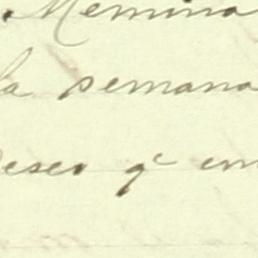 Memina
la semana
deseo q̄ en